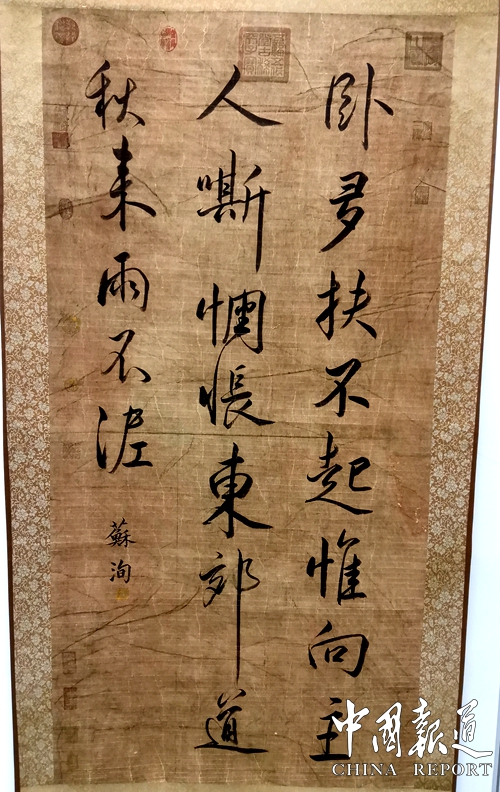 卧多扶不起惟向主
人嘶惆悵東郊道
秋来雨不泥
蘇洵
中國報道
CHINA REPORT